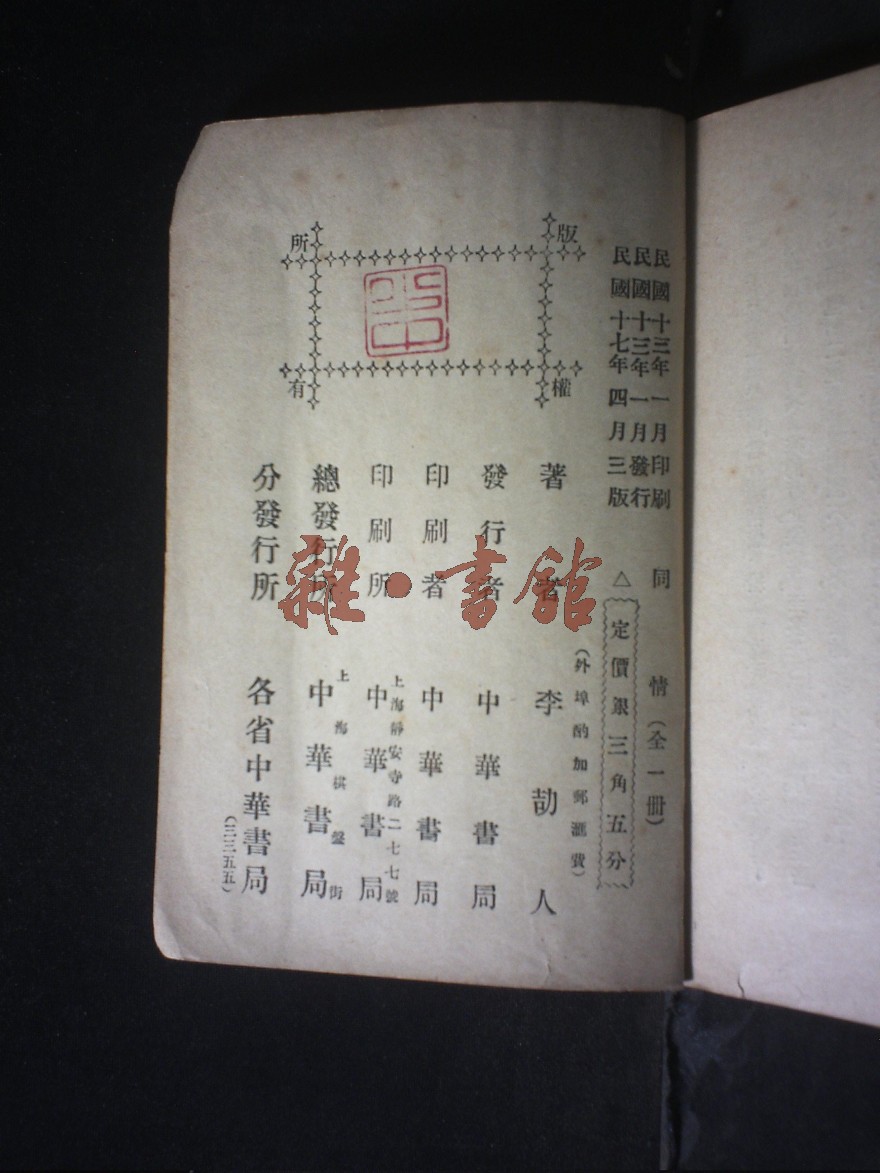 民國十三年一月印刷
民國十三年一月發行
民國十七年四月三版
同情(全一冊)
△定價銀三角五分
(外埠酌加郵滙費)
版權所有
著者 李劼人
發行者 中華書局
印刷者 中華書局
上海靜安寺路二七七號
印刷所 中華書局
上海棋盤街
總發行所 中華書局
分發行所 各省中華書局
(三三五五)
雜·書館